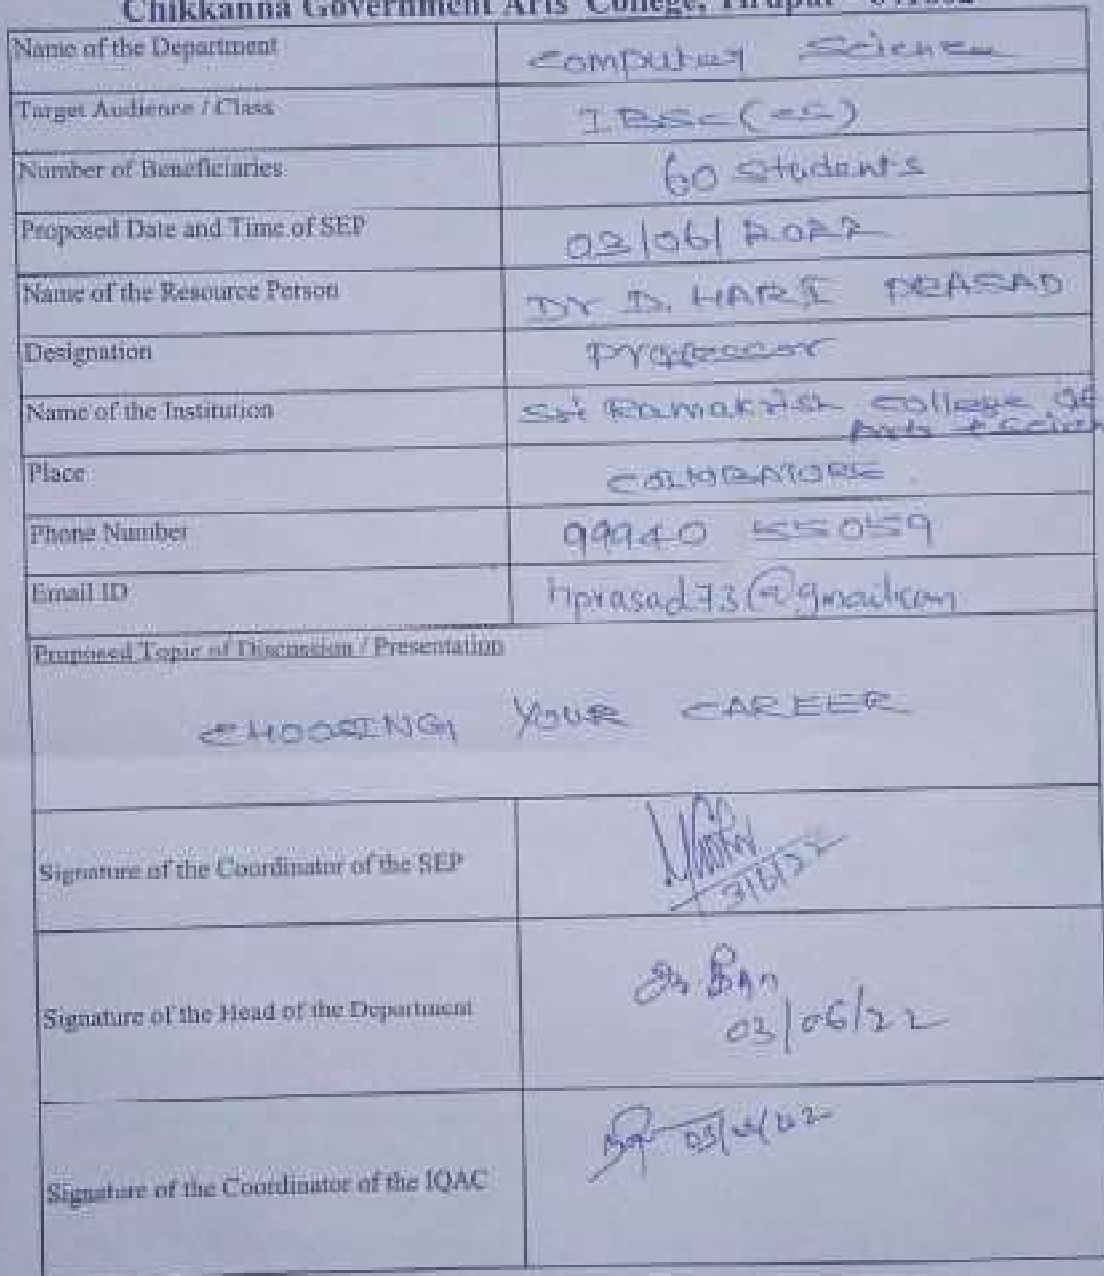 Chikkanna Government Arts College, Tirupur - 641602
Name of the Department Computer Science
Target Audience / Class I BSC (CS)
Number of Beneficiaries 60 students
Proposed Date and Time of SEP 03/06/2022
Name of the Resource Person Dr D. HARI PRASAD
Designation Professor
Name of the Institution Sri Ramakrish College of
Arts + Scien
Place COIMBATORE.
Phone Number 99940 55059
Email ID hprasad73@gmail.com
Proposed Topic of Discussion / Presentation
CHOOSING YOUR CAREER
Signature of the Coordinator of the SEP
3/6/22
Signature of the Head of the Department
03/06/22
Signature of the Coordinator of the IQAC